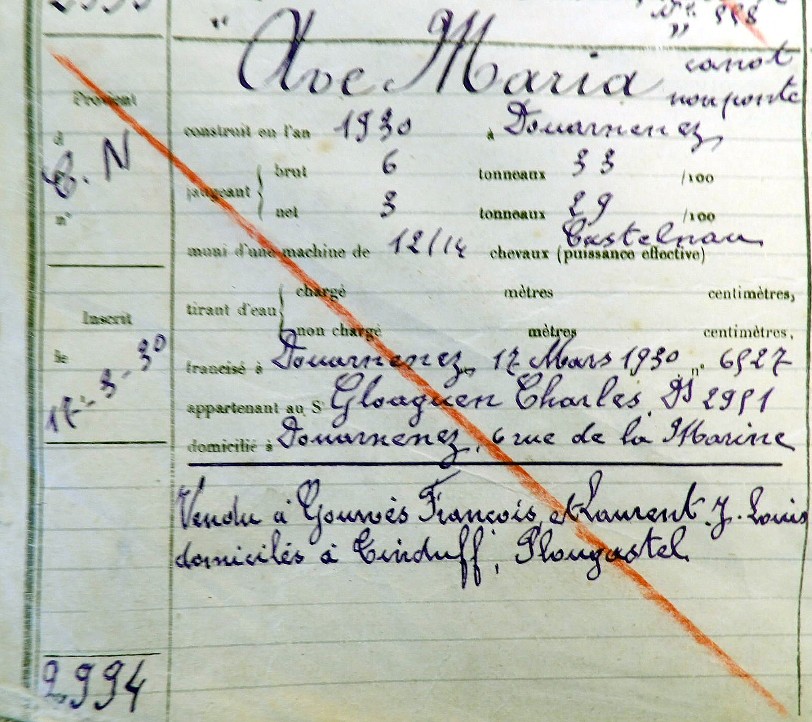 Ave Maria
canot
non ponté
Provient
d
C. N
n°
construit en l'an 1930 à Douarnenez
jaugeant
brut 6 tonneaux 33 /100
net 3 tonneaux 29 /100
muni d'une machine de 12/14 chevaux (puissance effective)
Castelnau
tirant d'eau
chargé mètres centimètres,
non chargé mètres centimètres,
Inscrit
le
17-3-30
francisé à Douarnenez, 17 Mars 1930 n° 6527
appartenant au Sr Gloaguen Charles, DZ 2951
domicilié à Douarnenez, 6 rue de la Marine
Vendu à Gourvès François et Laurent J. Louis
domiciliés à Tinduff, Plougastel
2994